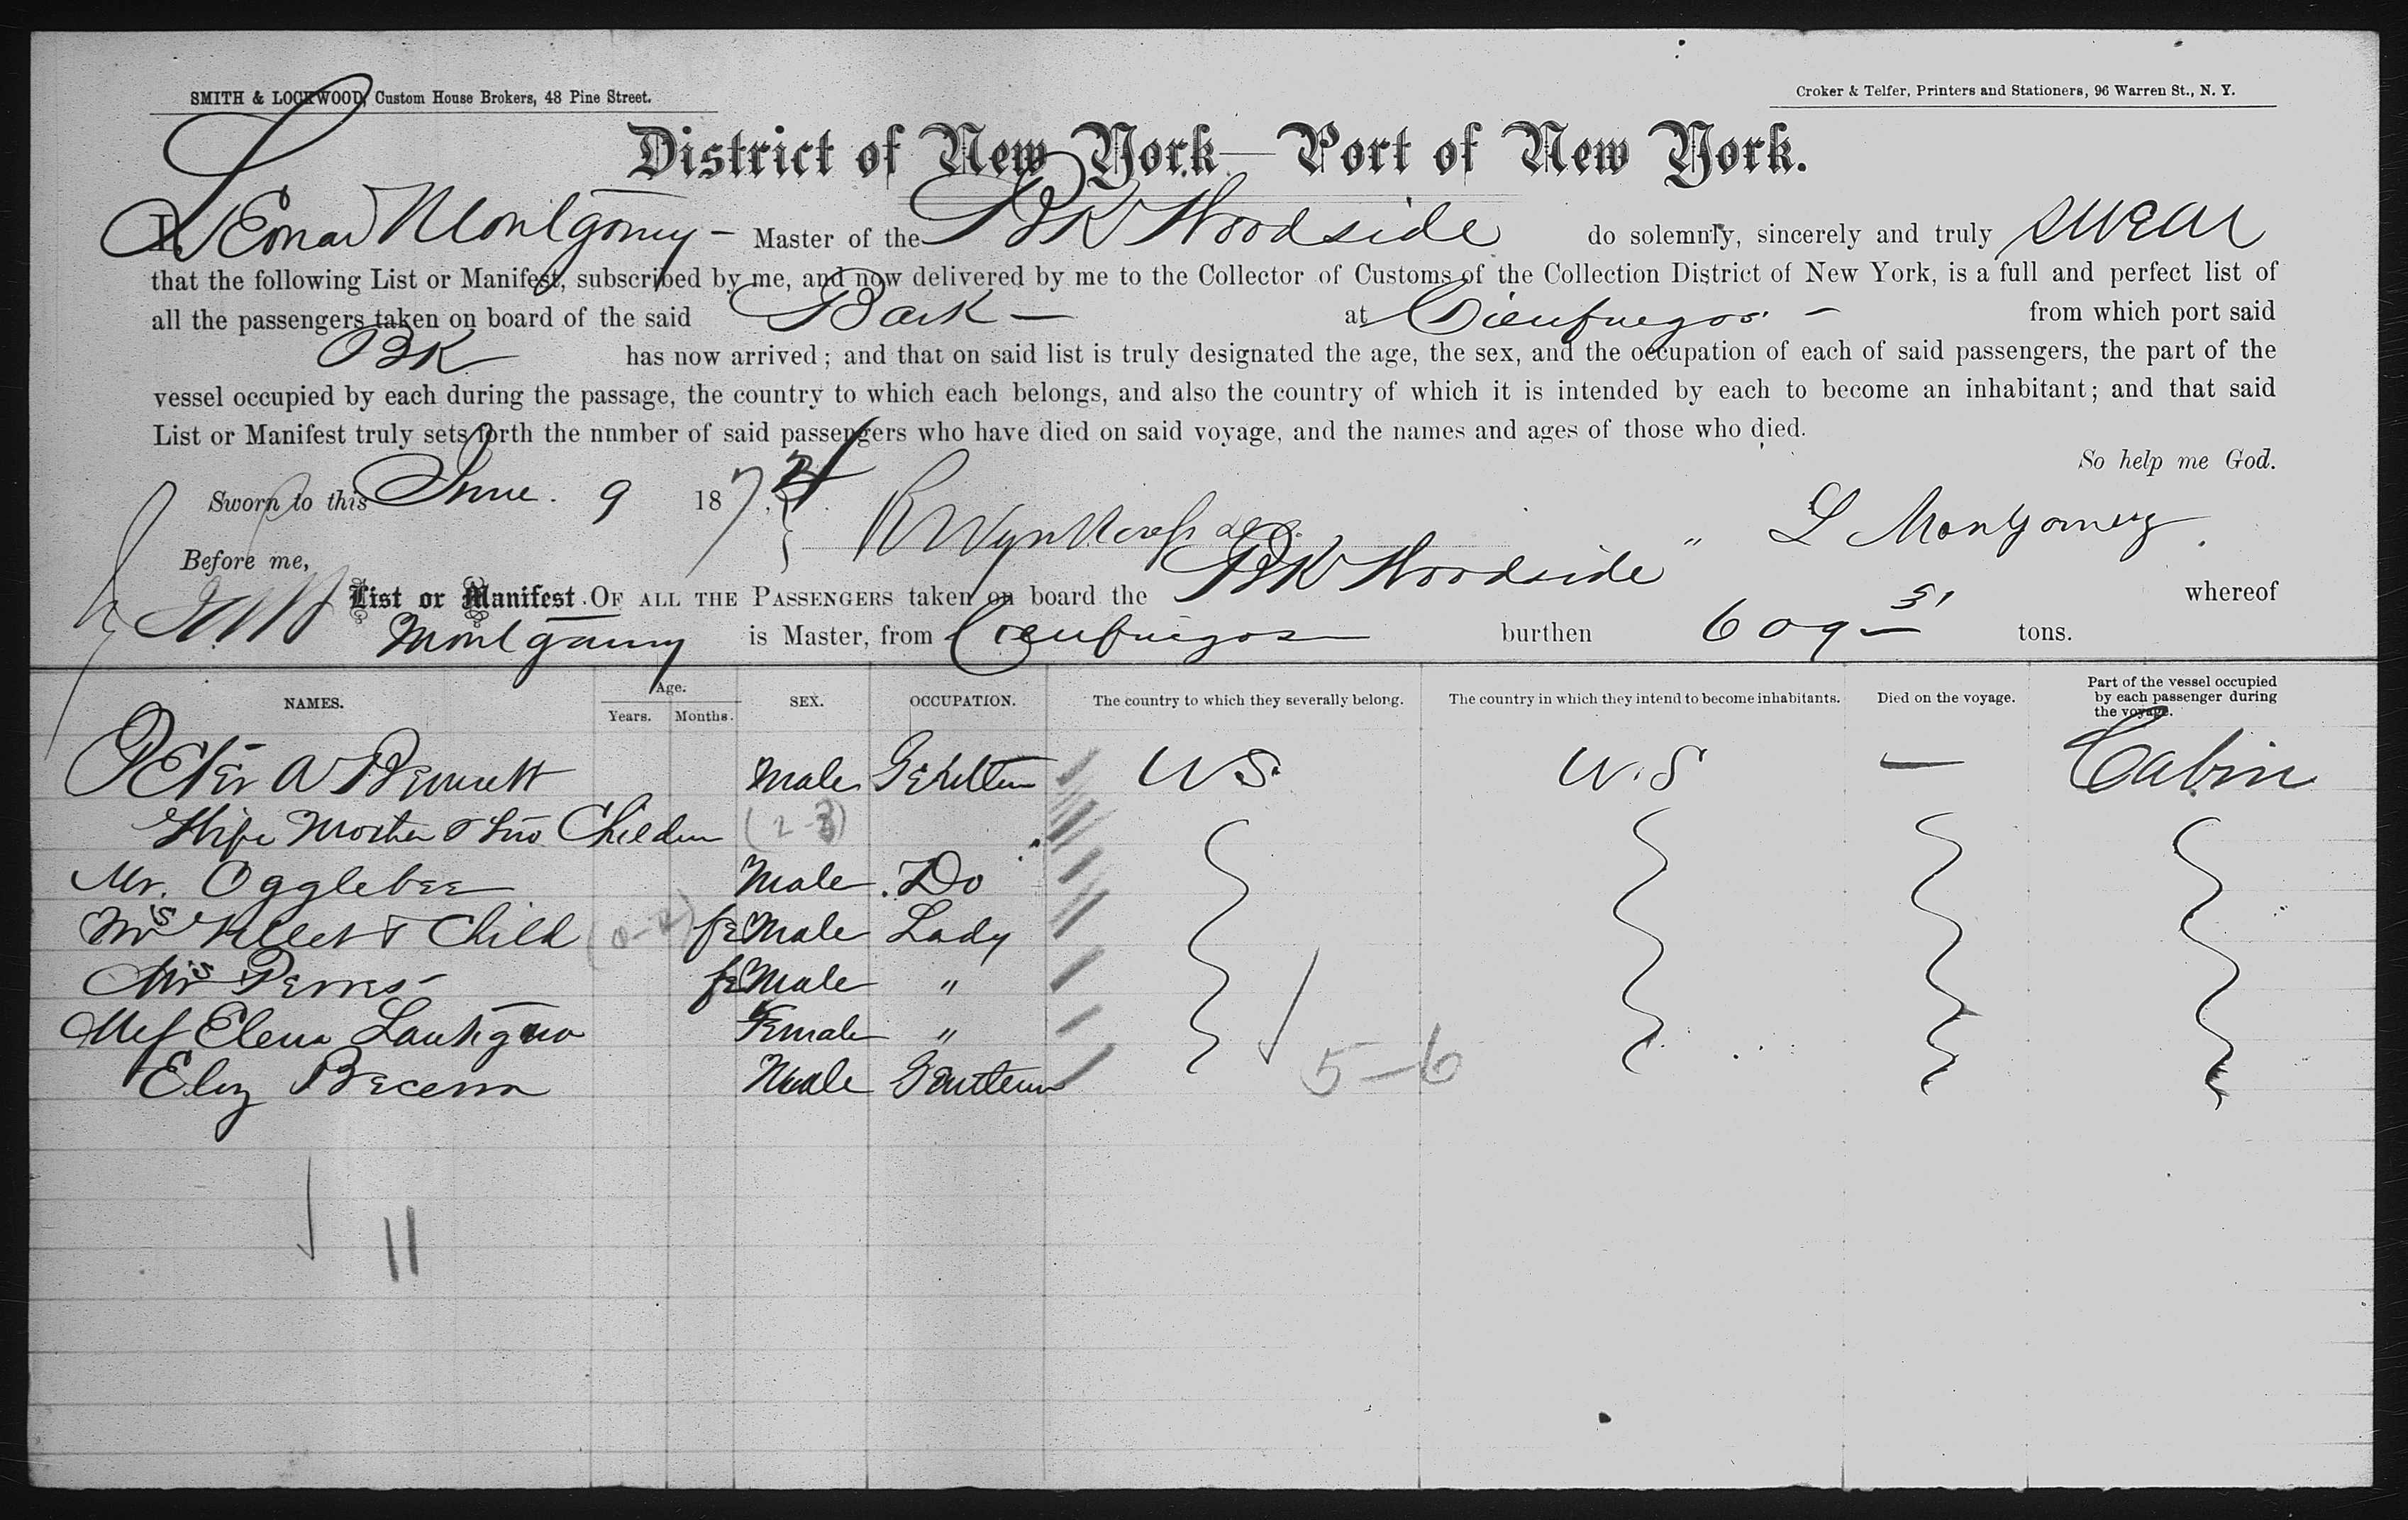 SMITH & LOCKWOOD, Custom House Brokers, 48 Pine Street.
Croker & Telfer, Printers and Stationers, 96 Warren St., N. Y.
District of New York—Port of New York.
I, Montgomy - Master of the BK Woodside do solemnly, sincerely and truly swear
that the following List or Manifest, subscribed by me, and now delivered by me to the Collector of Customs of the Collection District of New York, is a full and perfect list of
all the passengers taken on board of the said Bark — at Cienfuegos - from which port said
BK has now arrived; and that on said list is truly designated the age, the sex, and the occupation of each of said passengers, the part of the
vessel occupied by each during the passage, the country to which each belongs, and also the country of which it is intended by each to become an inhabitant; and that said
List or Manifest truly sets forth the nnmber of said passengers who have died on said voyage, and the names and ages of those who died.
So help me God.
Sworn to this June. 9 1874
L Montgomery
Before me,
List or Manifest OF ALL THE PASSENGERS taken on board the BK Woodside " whereof
Montgomy is Master, from Cienfuegos burthen 609 tons.
NAMES. Age. Years. Months. SEX. OCCUPATION. The country to which they severally belong. The country in which they intend to become inhabitants. Died on the voyage. Part of the vessel occupied by each passenger during the voyage.
Peter A Bennett Male US. U.S — Cabin
Wife Mother & two Children (2-3)
Mr. Ogglebee Male Do
Mrs & Child feMale Lady
Mrs feMale "
Elena Female "
Male
5-6
11